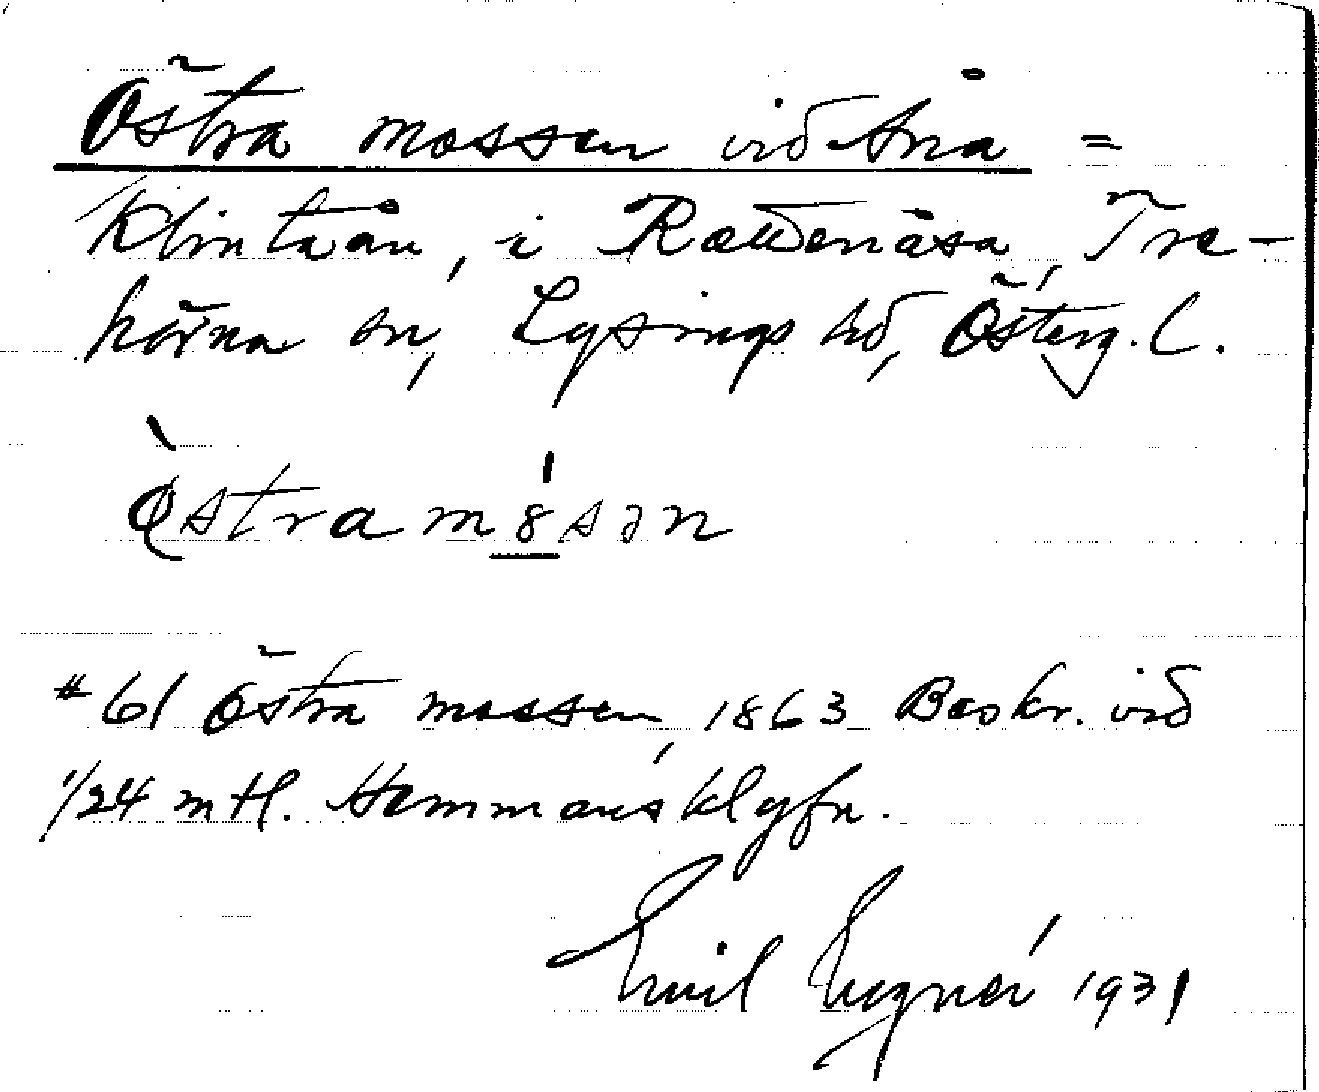 Östra mossen vid Åna =
Klintaån, i Rættenäsa, Tre-
hörna sn, Lysings hd, Österg. L.
Östra mässən
#61 Östra mossen, 1863 Beskr. vid
1/24 mtl. Hemmansklyfn.
Emil Evgnér 1931